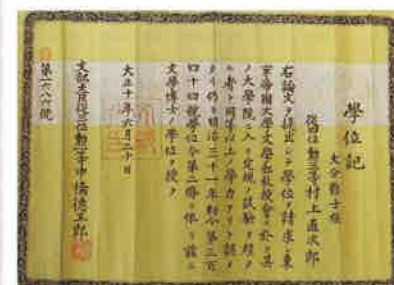 學位記
大分縣士族
從四位勳三等村上直次郎
右論文ヲ提出シテ學位ヲ請求シ東
京帝國大學文學部教授會ニ於テ其
ノ大學院ニ入リ定規ノ試驗ヲ經タ
ル者ト同等以上ノ學力アリト認メ
タリ仍テ明治三十一年勅令第三百
四十四號學位令第二條ニ依リ茲ニ
文學博士ノ學位ヲ授ク
大正十年六月二十日
文部大臣從三位勳一等中橋德五郎
第一六八六號